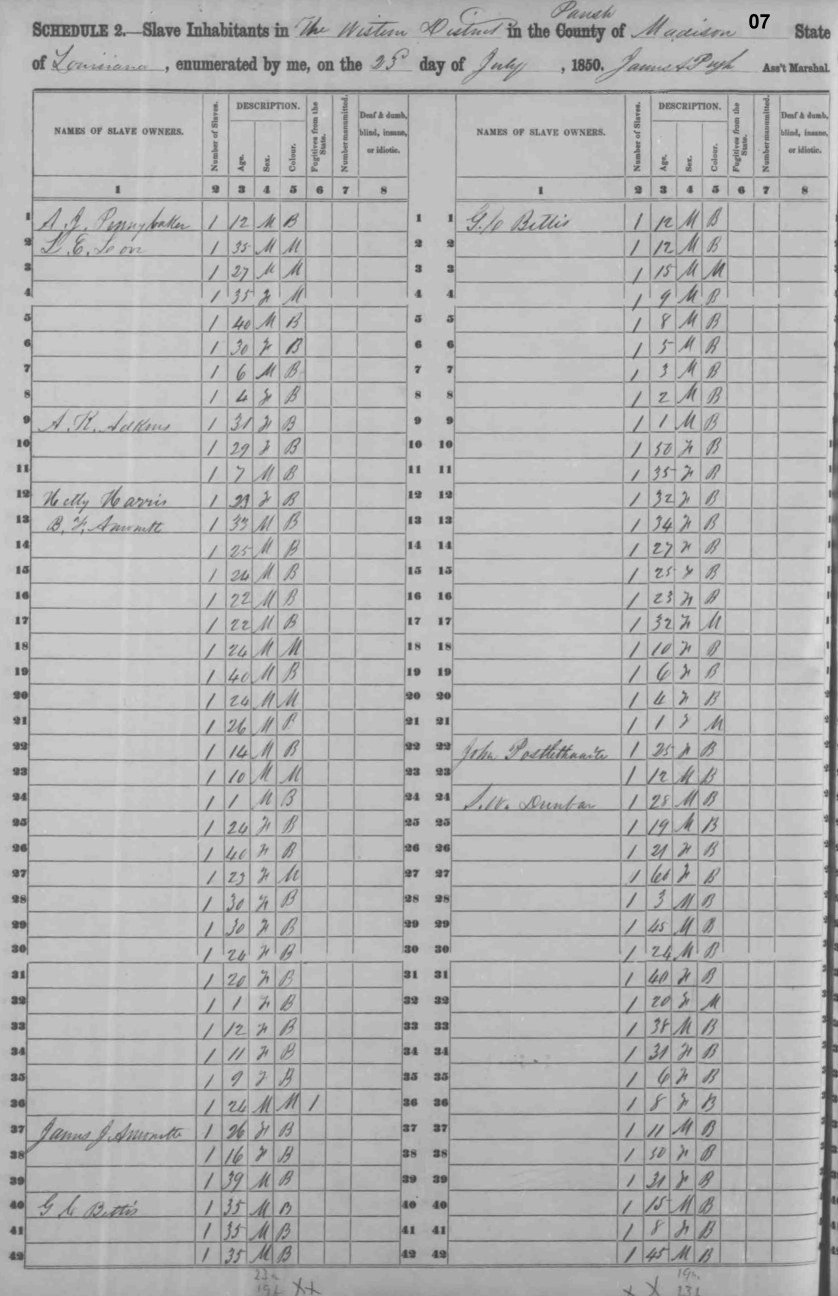 Parish
SCHEDULE 2.—Slave Inhabitants in The Western District in the County of Madison 07 State
of Louisiana, enumerated by me, on the 25 day of July, 1850. James A Pugh Ass't Marshal.
NAMES OF SLAVE OWNERS. Number of Slaves. DESCRIPTION. Age. Sex. Colour. Fugitives from the State. Number manumitted. Deaf & dumb, blind, insane, or idiotic. NAMES OF SLAVE OWNERS. Number of Slaves. DESCRIPTION. Age. Sex. Colour. Fugitives from the State. Number manumitted. Deaf & dumb, blind, insane, or idiotic.
1 2 3 4 5 6 7 8 1 2 3 4 5 6 7 8
1 A. J. Pennybaker 1 12 M B 1 1 G. C Bettis 1 12 M B
2 L. E. Leon 1 35 M M 2 2 1 12 M B
3 1 27 M M 3 3 1 15 M M
4 1 35 F M 4 4 1 9 M B
5 1 40 M B 5 5 1 8 M B
6 1 30 F B 6 6 1 5 M B
7 1 6 M B 7 7 1 3 M B
8 1 4 F B 8 8 1 2 M B
9 A. K. Adkins 1 31 F B 9 9 1 1 M B
10 1 29 F B 10 10 1 50 F B
11 1 7 M B 11 11 1 35 F B
12 Hetty Harris 1 23 F B 12 12 1 32 F B
13 B. F. Amonett 1 33 M B 13 13 1 34 F B
14 1 25 M B 14 14 1 27 F B
15 1 24 M B 15 15 1 25 F B
16 1 22 M B 16 16 1 23 F B
17 1 22 M B 17 17 1 32 F M
18 1 24 M M 18 18 1 10 F B
19 1 40 M B 19 19 1 6 F B
20 1 24 M M 20 20 1 4 F B
21 1 26 M B 21 21 1 1 F M
22 1 14 M B 22 22 John Postlethwaite 1 25 F B
23 1 10 M M 23 23 1 12 M B
24 1 1 M B 24 24 S. W. Dunbar 1 28 M B
25 1 24 F B 25 25 1 19 M B
26 1 40 F B 26 26 1 21 F B
27 1 23 F M 27 27 1 60 F B
28 1 30 F B 28 28 1 3 M B
29 1 30 F B 29 29 1 45 M B
30 1 24 F B 30 30 1 24 M B
31 1 20 F B 31 31 1 40 F B
32 1 1 F B 32 32 1 20 F M
33 1 12 F B 33 33 1 38 M B
34 1 11 F B 34 34 1 31 F B
35 1 9 F B 35 35 1 6 F B
36 1 24 M M 1 36 36 1 8 F B
37 James J. Amonette 1 26 F B 37 37 1 11 M B
38 1 16 F B 38 38 1 50 F B
39 1 39 M B 39 39 1 31 F B
40 G C Bettis 1 35 M B 40 40 1 15 M B
41 1 35 M B 41 41 1 8 F B
42 1 35 M B 42 42 1 45 M B
XX X X